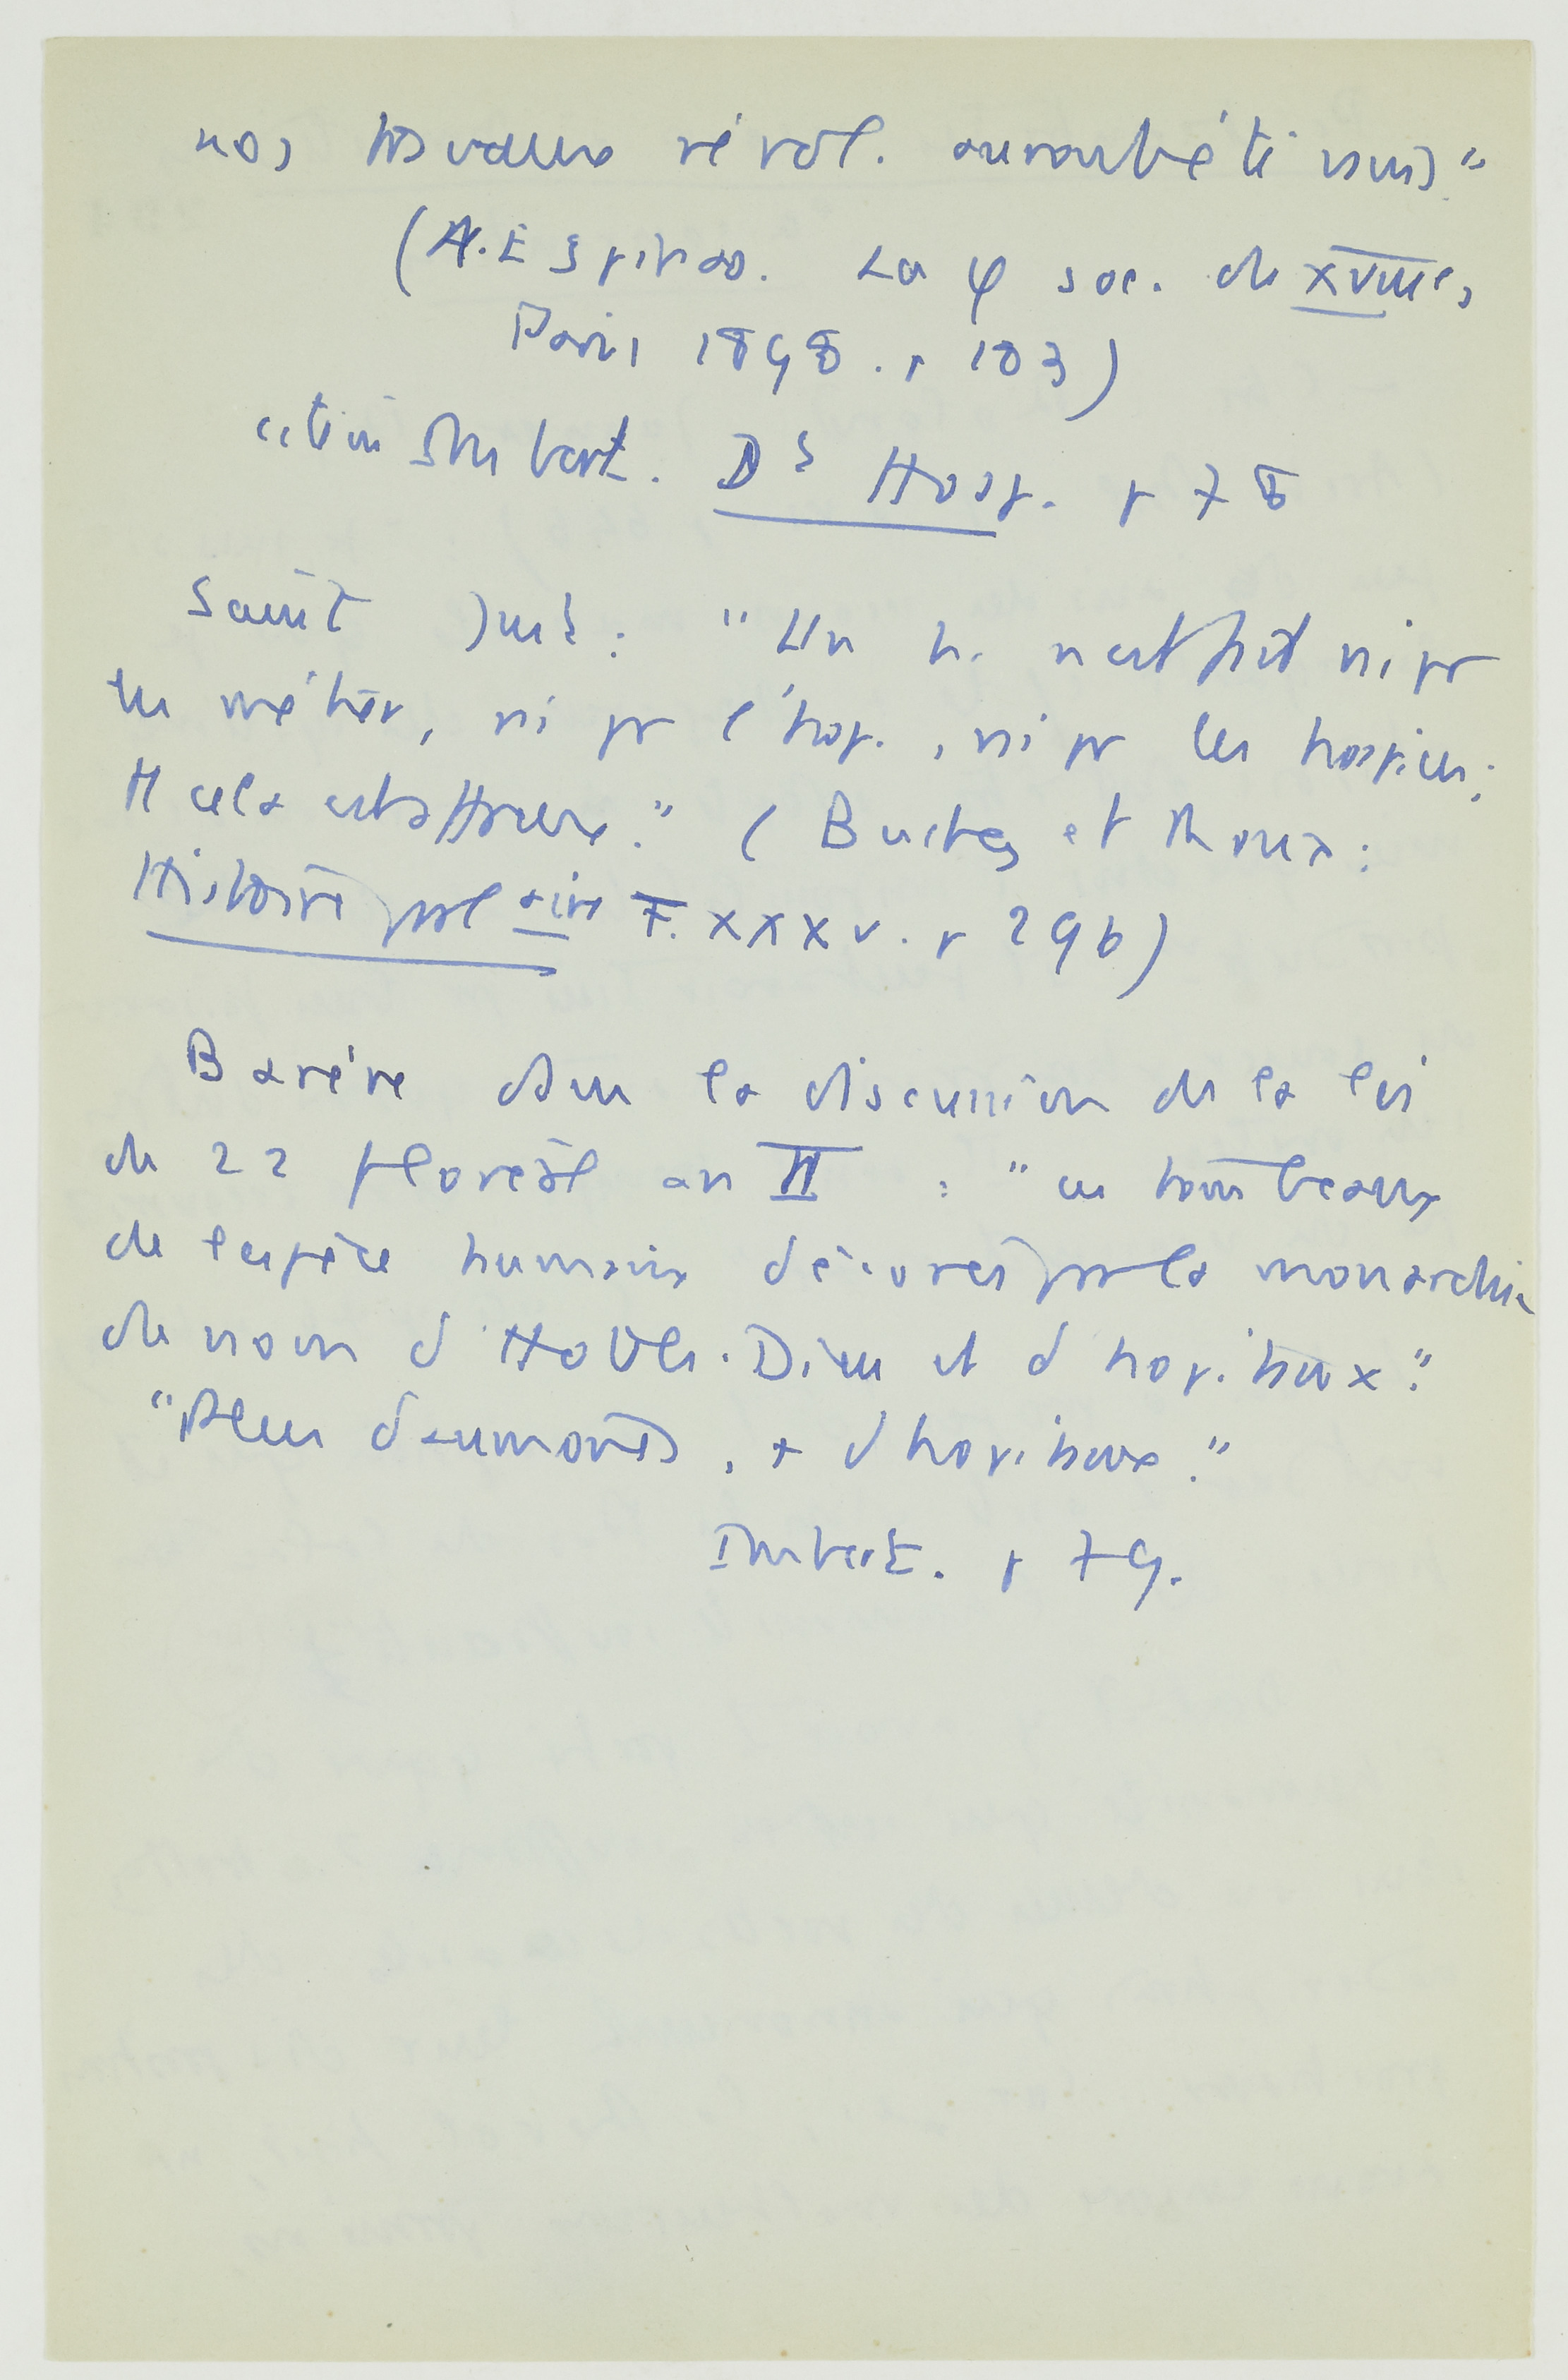 nos travaux révol. auront été vains."
(A. Espinas. La φ soc. du XVIIIe,
Paris 1898. p 183)
cité in Imbert. Dt Hosp. p 78
Saint Just : "Un h. n'est fait ni pr
les métiers, ni pr l'hop., ni pr les hospices;
tt cela est affreux." (Buchez et Roux :
Histoire parlaire T. XXXV. p 296)
Barère dans la discussion de la loi
du 22 floréal an II : "ces tombeaux
de l'espèce humaine décorés par la monarchie
du nom d'Hôtels-Dieu et d'hopitaux."
"Plus d'aumônes, + d'hopitaux."
Imbert. p 79.